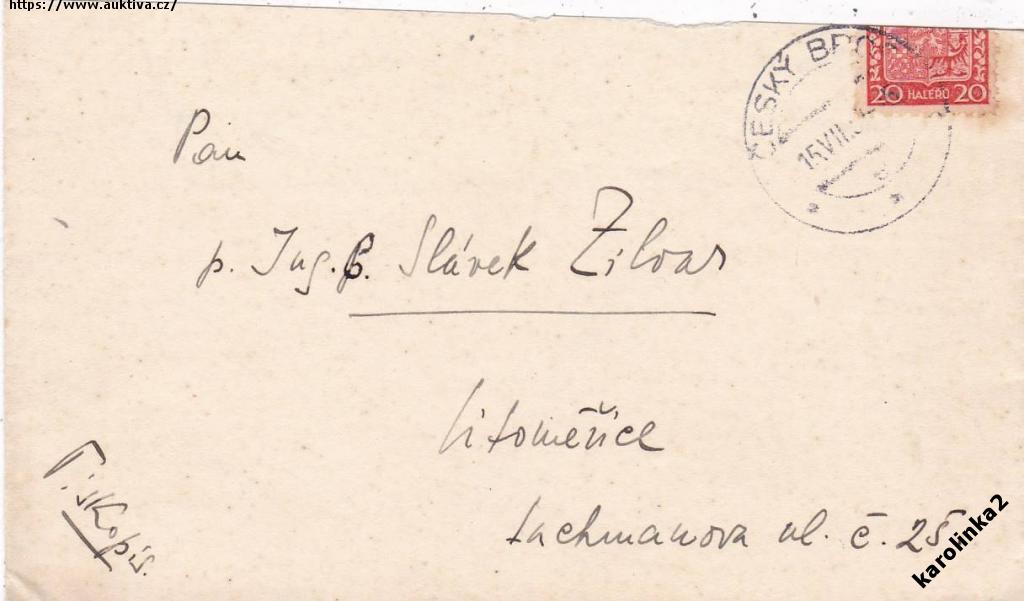 https://www.auktiva.cz/
ČESKÝ BRO
15.VII.3
20 HALÉŘŮ 20
Pan
p. Ing. B. Slávek Zilvar
Litoměřice
Lachmanova ul. č. 25
Tiskopis.
karolinka2